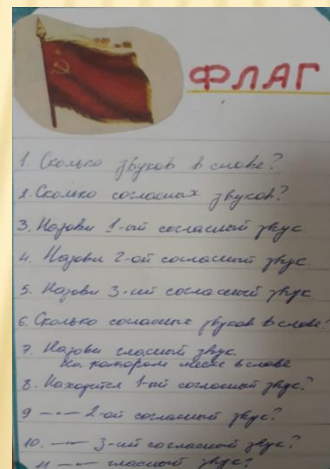 ФЛАГ
1. Сколько звуков в слове?
2. Сколько согласных звуков?
3. Назови 1-ый согласный звук
4. Назови 2-ой согласный звук
5. Назови 3-ий согласный звук
6. Сколько согласных звуков в слове?
7. Назови гласный звук.
На котором месте в слове
8. Находится 1-ый согласный звук?
9 —"— 2-ой согласный звук?
10. —"— 3-ий согласный звук?
11 —"— гласный звук?